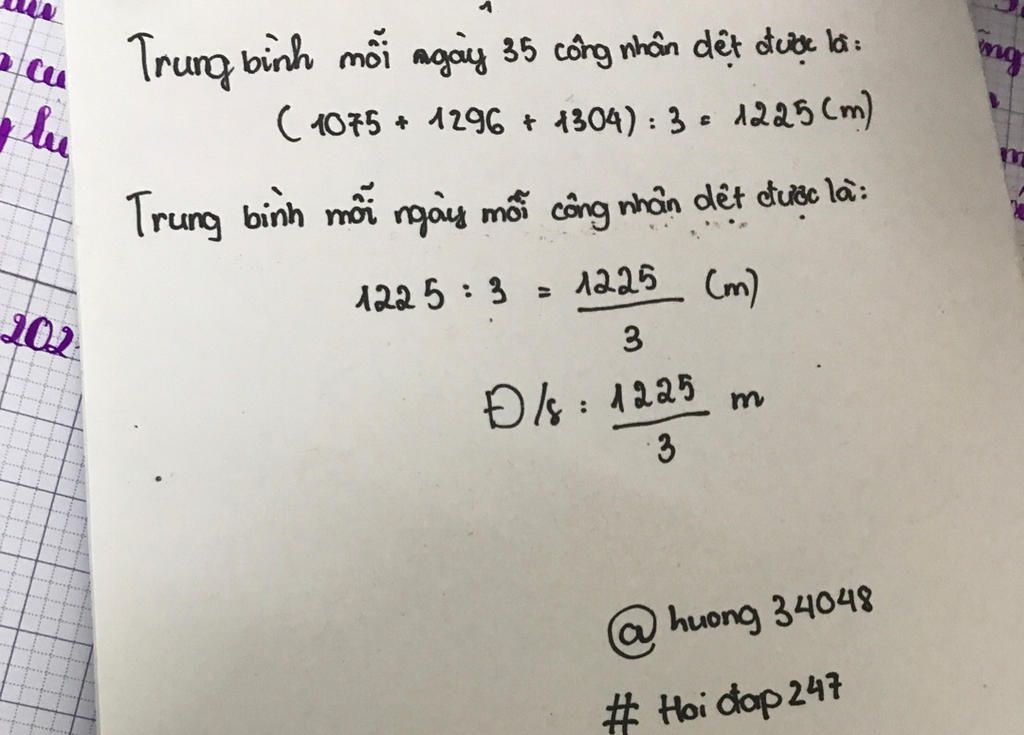 Trung bình mỗi ngày 35 công nhân dệt được là:
(1075 + 1296 + 1304) : 3 = 1225 (m)
Trung bình mỗi ngày mỗi công nhân dệt được là:
1225 : 3 = 1225/3 (m)
Đ/s : 1225/3 m
@huong 34048
# Hoi đap 247
202